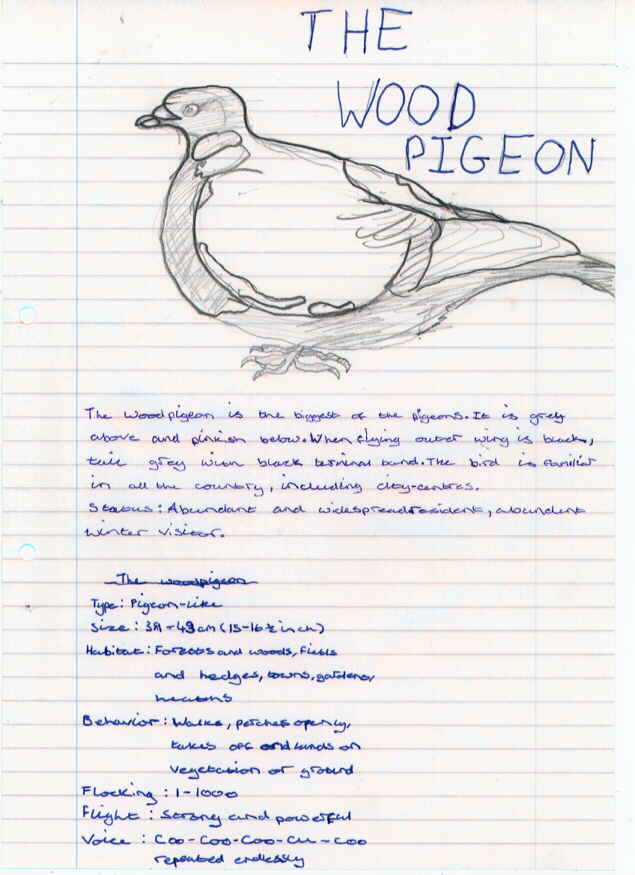 THE
WOOD
PIGEON
The woodpigeon is the biggest of the pigeons. It is grey
above and pinkish below. When flying outer wing is black,
tail grey with black terminal band. The bird is familiar
in all the country, including city-centres.
Status: Abundant and widespread resident, abundent
winter visitor.
The woodpigeon
Type: Pigeon-like
Size: 39-43cm (15-16½ inch)
Habitat: Forests and woods, fields
and hedges, towns, gardens,
heaths
Behavior: Walks, perches openly,
takes off and lands on
vegetation or ground
Flocking: 1-1000
Flight: Strong and powerful
Voice: Coo-Coo-Coo-Cu-Coo
repeated endlessly